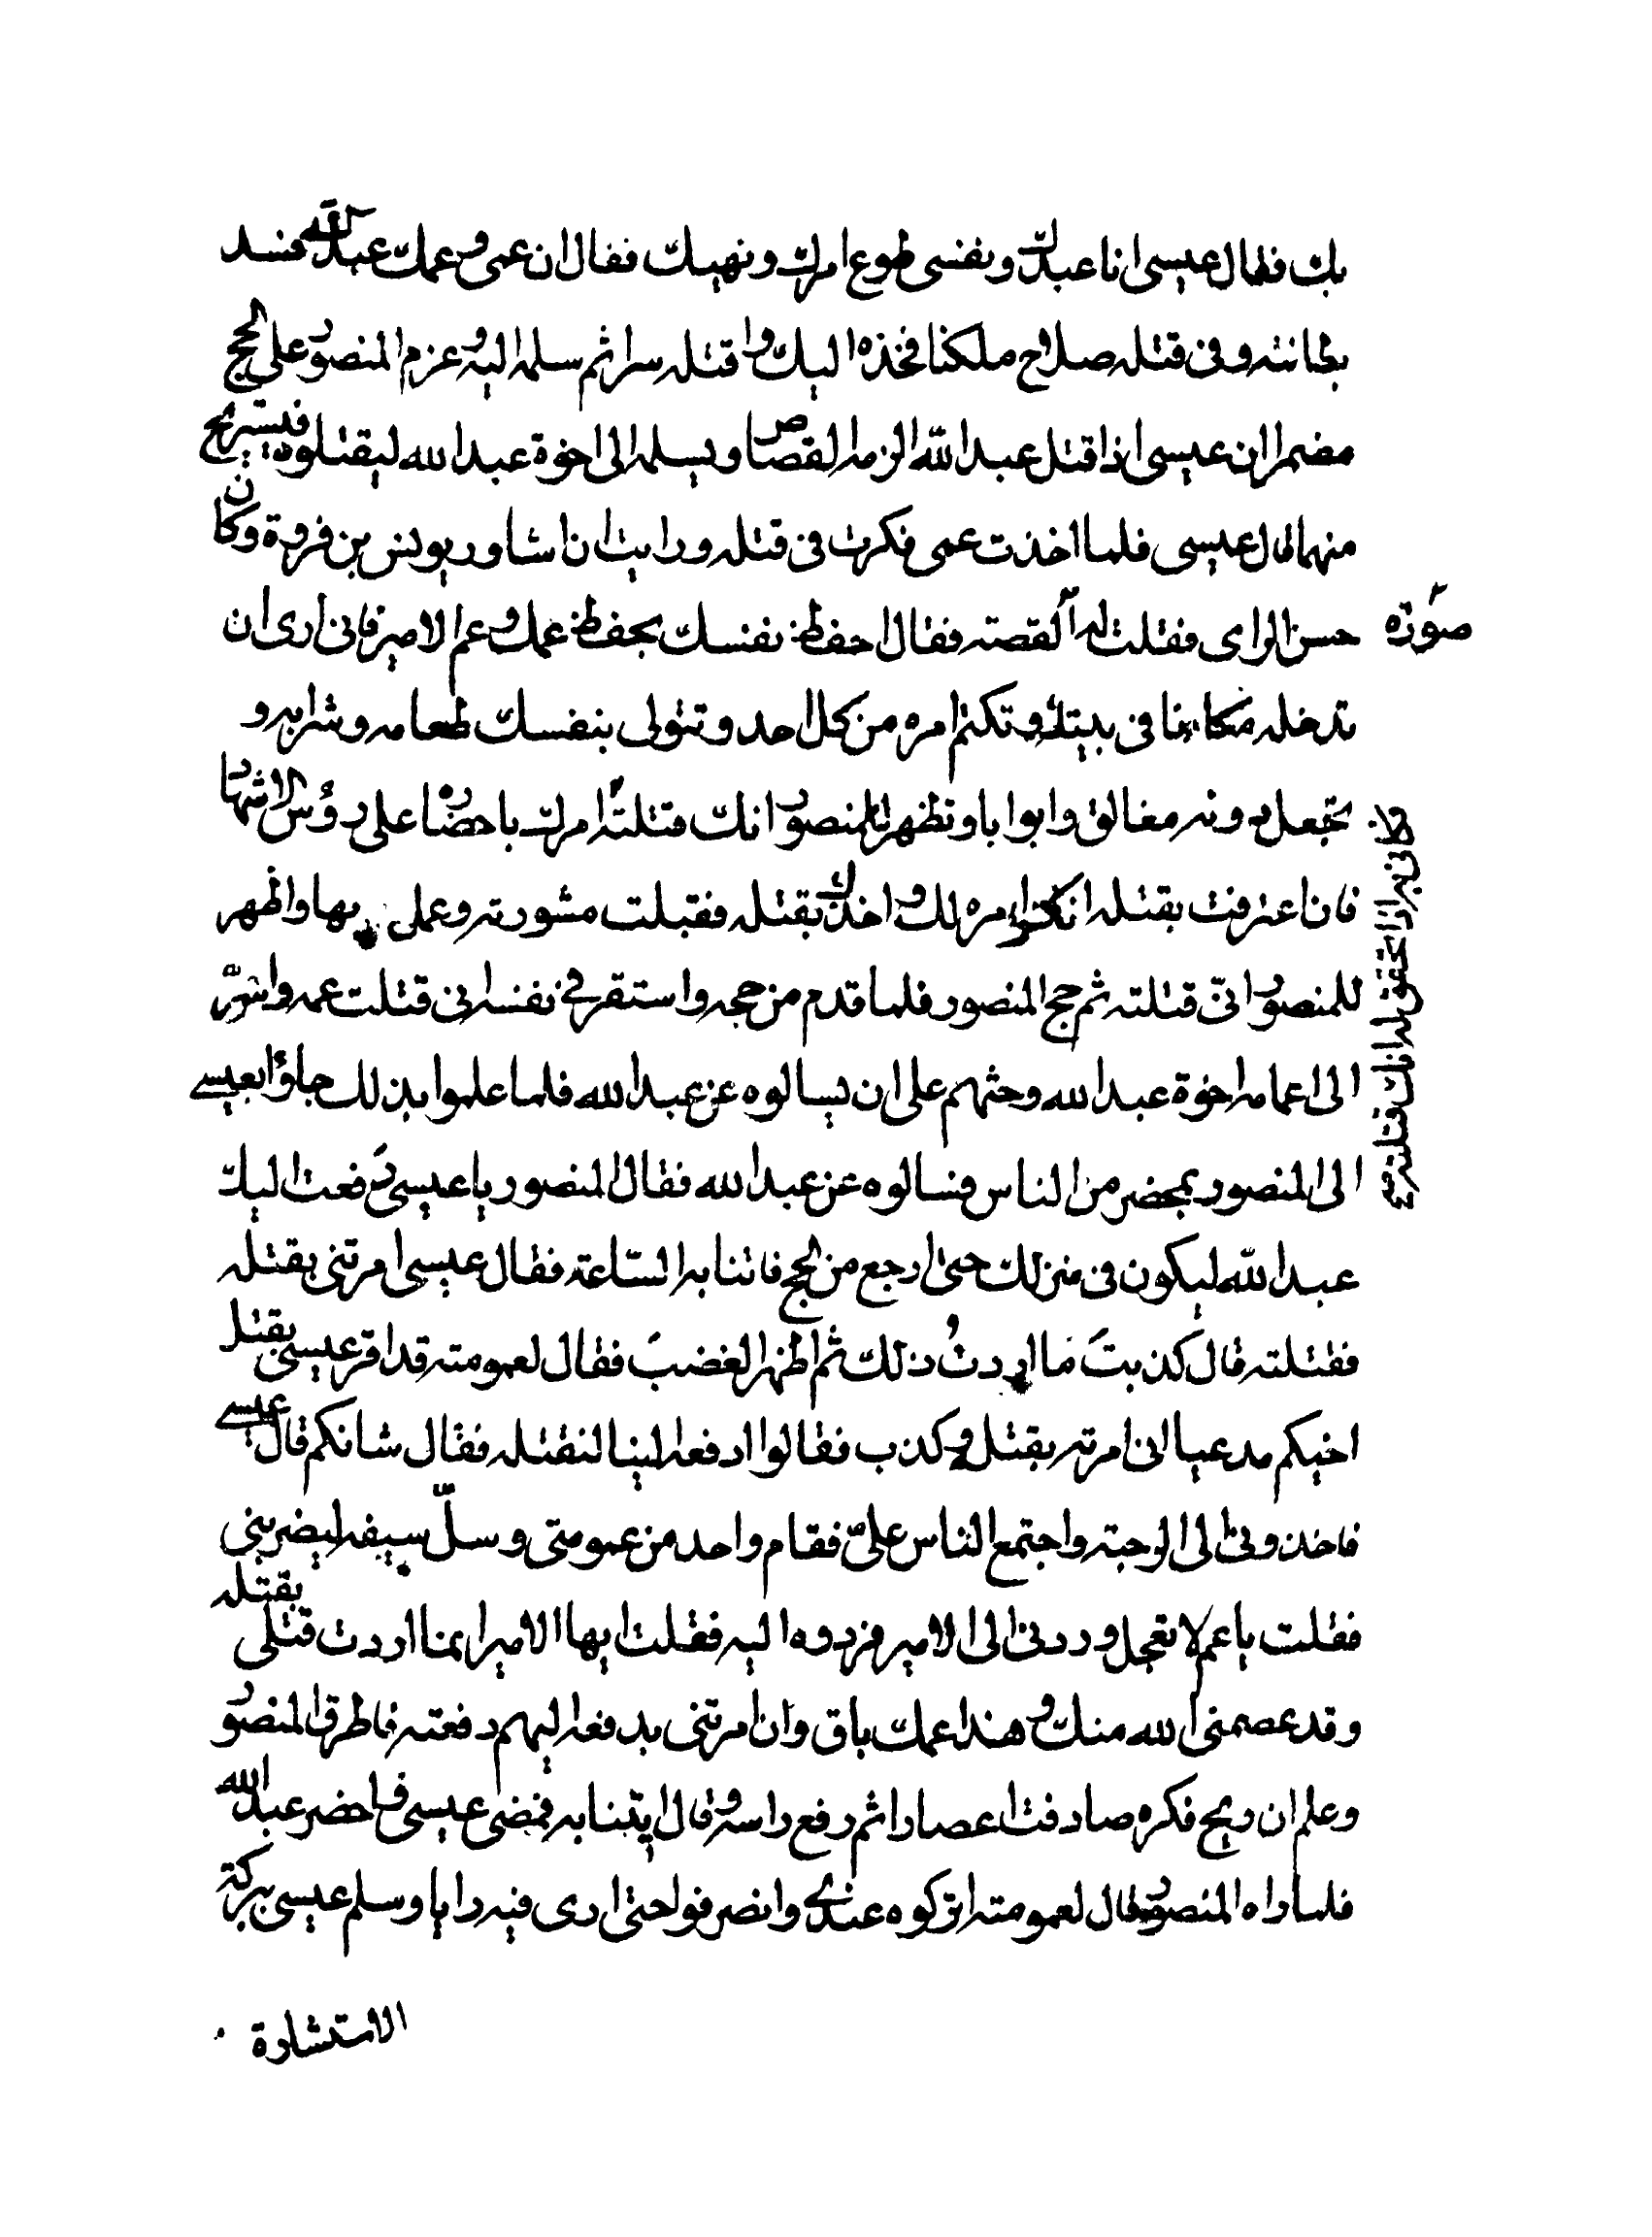 بك فقال عيسى انا عبدك ونفسى طوع امرك ونهيك فقال ان عمى وعمك عبد الله فسد
بطانته وفى قتله صلاح ملكنا فخذه اليك واقتله سرا ثم سلمه اليه وعزم المنصور على الحج
مضمرا ان عيسى اذا قتل عبد الله الزمه القصاص ويسلمه الى اخوة عبد الله ليقتلوه فيستريح
منهما قال عيسى فلما اخذت عمى فكرت فى قتله ورايت ان اشاور يونس بن فروة وكان
حسن الراى فقلت له القصته فقال احفظ نفسك بحفظ عمك وعم الامير فانى ارى ان
صورة
تدخله مكانا فى بيتك وتكتم امره من كل احد وتتولى بنفسك طعامه وشرابه و
تجعل دونه مغالق وابوابا وتظهر للمنصور انك قتلته امرك باحضاره على رؤس الاشهاد
فان اعترفت بقتله انكر امره لك واخذك بقتله فقبلت مشورته وعملى بها واظهر
للمنصور انىّ قتلته ثم حج المنصور فلما قدم من حجه واستقر فى نفسه انى قتلت عمه واسرّ
الى اعمامه اخوة عبد الله وحثهم على ان يسالوه عن عبد الله فلما علموا بذلك جاؤا بعيسى
الى المنصور بمحضر من الناس فسالوه عن عبد الله فقال المنصور يا عيسى دفعت اليك
عبد الله ليكون فى منزلك حتى ارجع من الحج فاتنا به الساعة فقال عيسى امرتنى بقتله
فقتلته قال كذبت ما اردتُ ذلك ثم اظهر الغضب فقال لعمومته قد اقر عيسى بقتل
اخيكم مدعيا انى امرته بقتله وكذب فقالوا ادفعه الينا لنقتله فقال شانكم قال عيسى
فاخذونى الى الوحبته واجتمع الناس علىّ فقام واحد من عمومتى وسلّ سيفه ليضربنى
فقلت يا عم لا تعجل وردنى الى الامير فردوه اليه فقلت ايها الامير انما اردت قتلى بقتله
وقد عصمنى الله منك وهذا عمك باق وان امرتنى بدفعه اليهم دفعته فاطرق المنصور
وعلم ان ريح فكره صادفت اعصارا ثم رفع راسه وقال ايتنا به فمضى عيسى فاحضر عبد الله
فلما راه المنصور قال لعمومته اتركوه عندى وانصرفوا حتى ارى فيه رايا وسلم عيسى ببركة
الاستشارة